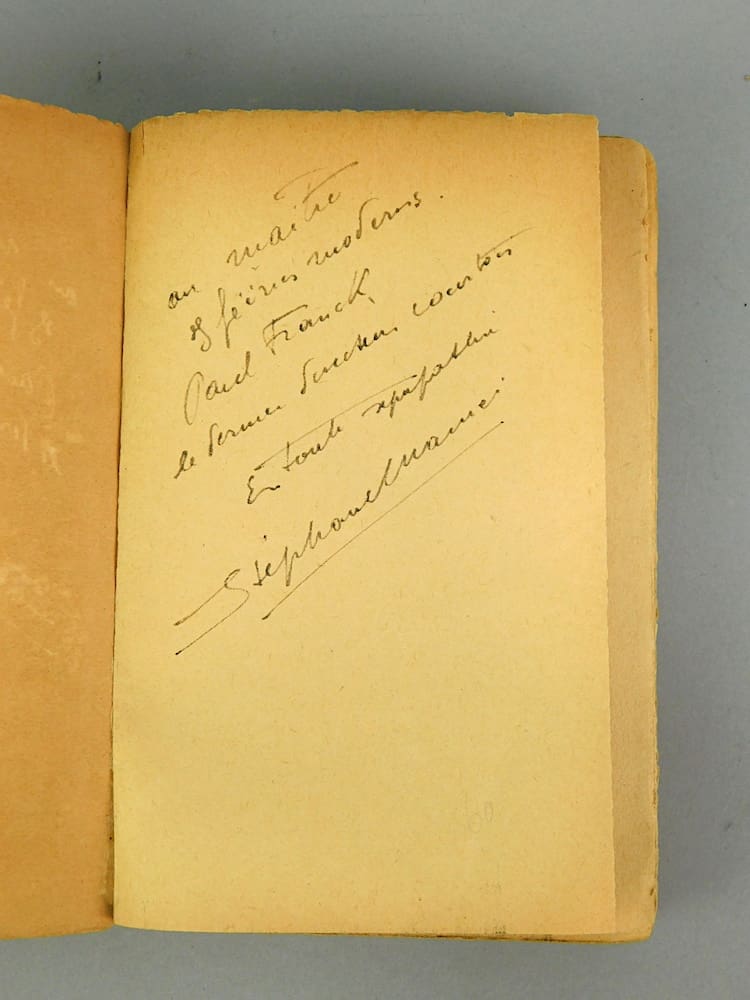 au maître
des féeries modernes.
Paul Franck,
le dernier directeur courtois
En toute sympathie
Stéphane Manier
60